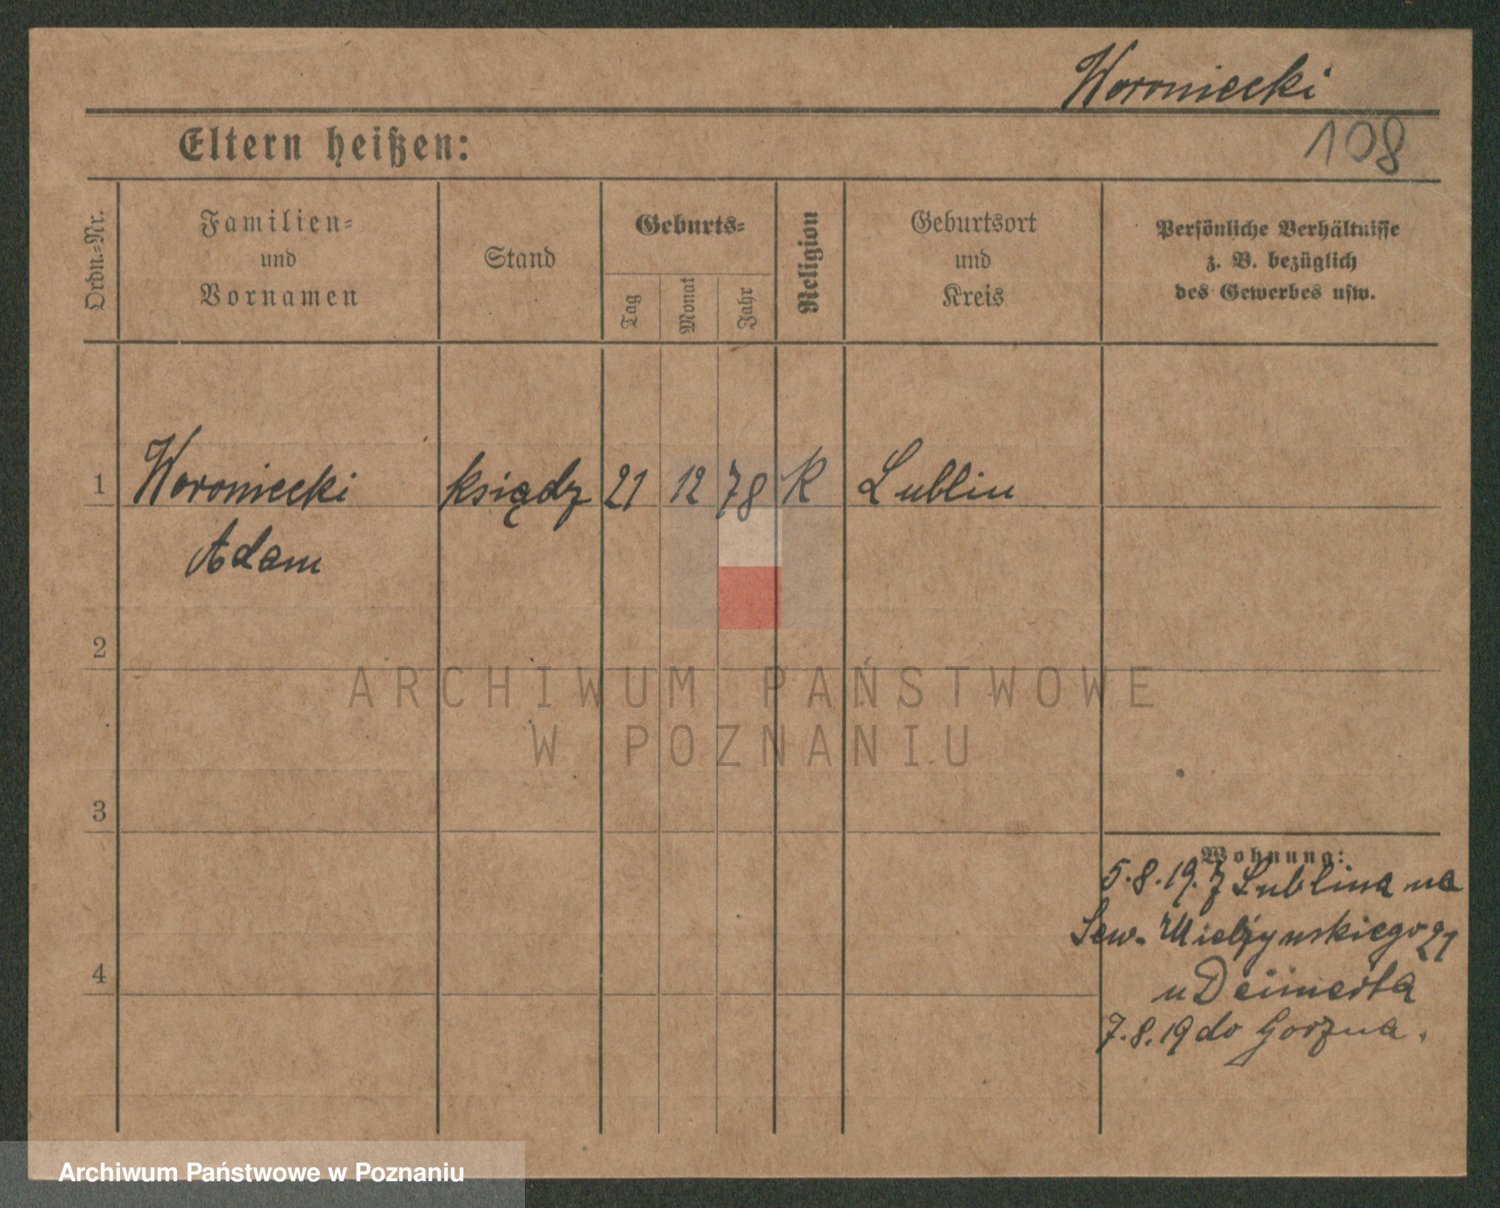 Woroniecki
Eltern heißen:
108
Ordn.-Nr.
Familien-
und
Vornamen
Stand
Geburts-
Tag
Monat
Jahr
Religion
Geburtsort
und
Kreis
Persönliche Verhältnisse
z. B. bezüglich
des Gewerbes usw.
1 Woroniecki ksiądz 21 12 78 K Lublin
Adam
2
ARCHIWUM PAŃSTWOWE
W POZNANIU
3
Wohnung:
5.8.19. z Lublina na
Sew. Mielżyńskiego 21
4
u Deimerta
7.8.19 do Gorzna.
Archiwum Państwowe w Poznaniu